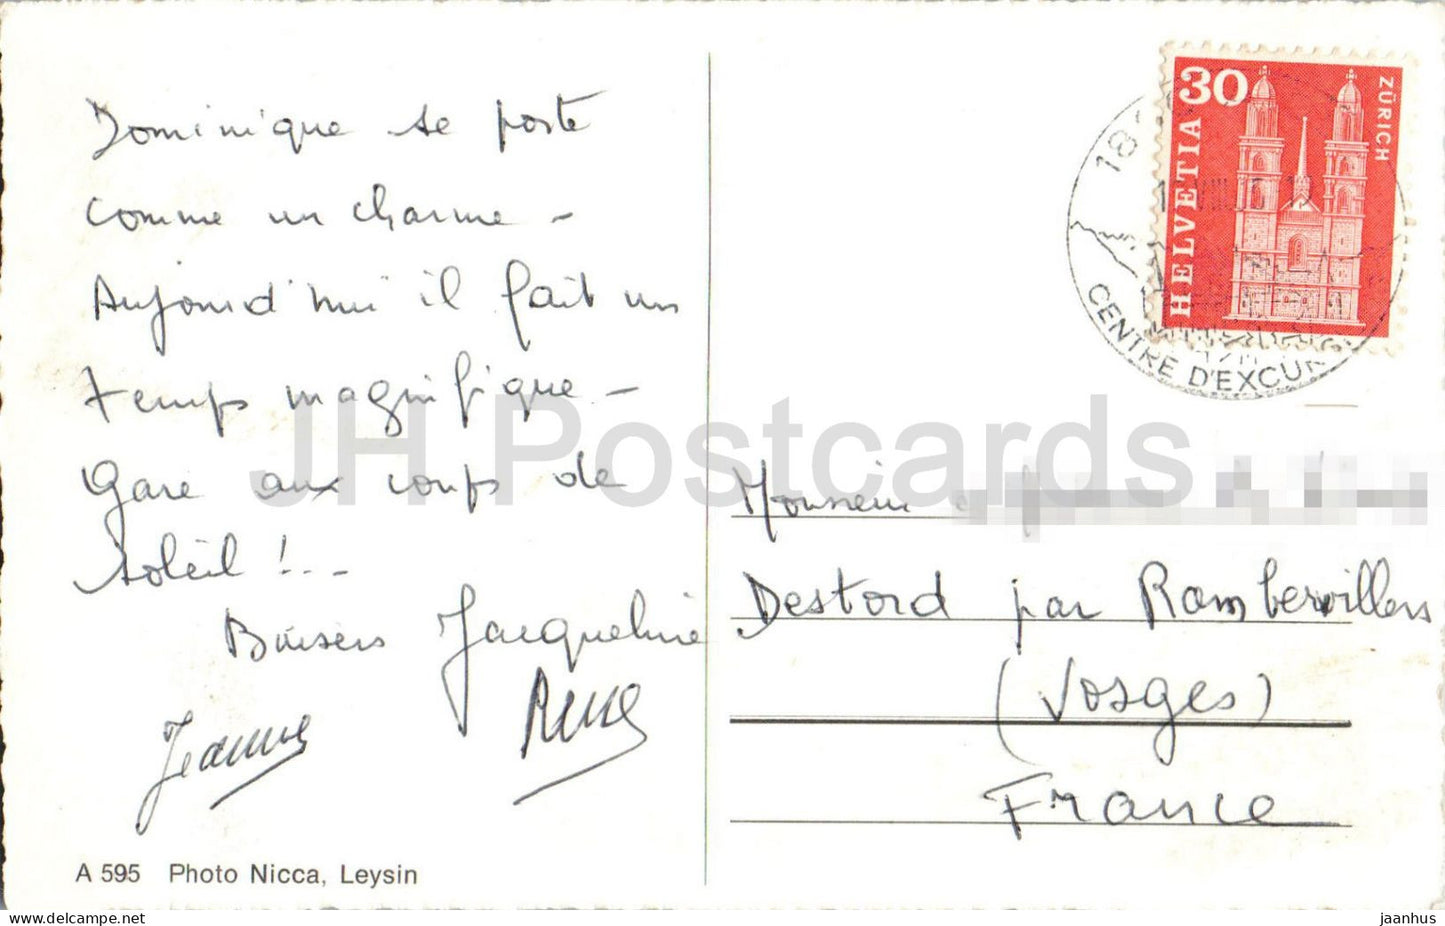 Dominique se porte
comme un charme -
Aujourd'hui il fait un
temps magnifique -
Gare aux coups de
soleil !...
Baisers Jacqueline
Jeanne René
A 595 Photo Nicca, Leysin
30
HELVETIA
ZÜRICH
18
CENTRE D'EXCUR
Monsieur
Destord par Rambervillers
(Vosges)
France
JH Postcards
www.delcampe.net
jaanhus